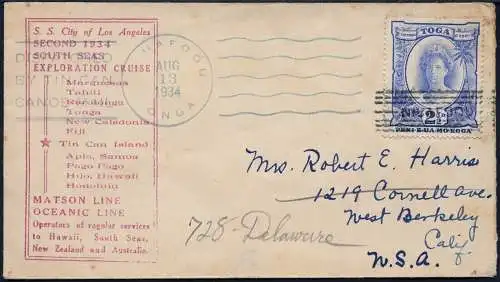 S. S. City of Los Angeles
SECOND 1934
SOUTH SEAS
EXPLORATION CRUISE
Marquesas
Tahiti
Rarotonga
Tonga
New Caledonia
Fiji
★ Tin Can Island
Apia, Samoa
Pago Pago
Hilo, Hawaii
Honolulu
MATSON LINE
OCEANIC LINE
Operators of regular services
to Hawaii, South Seas,
New Zealand and Australia.
BY TIN CAN
CANOE
NIAFOOU
AUG
13
1934
TONGA
TOGA
2½
PENI E UA MO EGGA
Mrs. Robert E. Harris
1219 Cornell Ave.
West Berkeley
Calif
U.S.A.
728 - Delaware